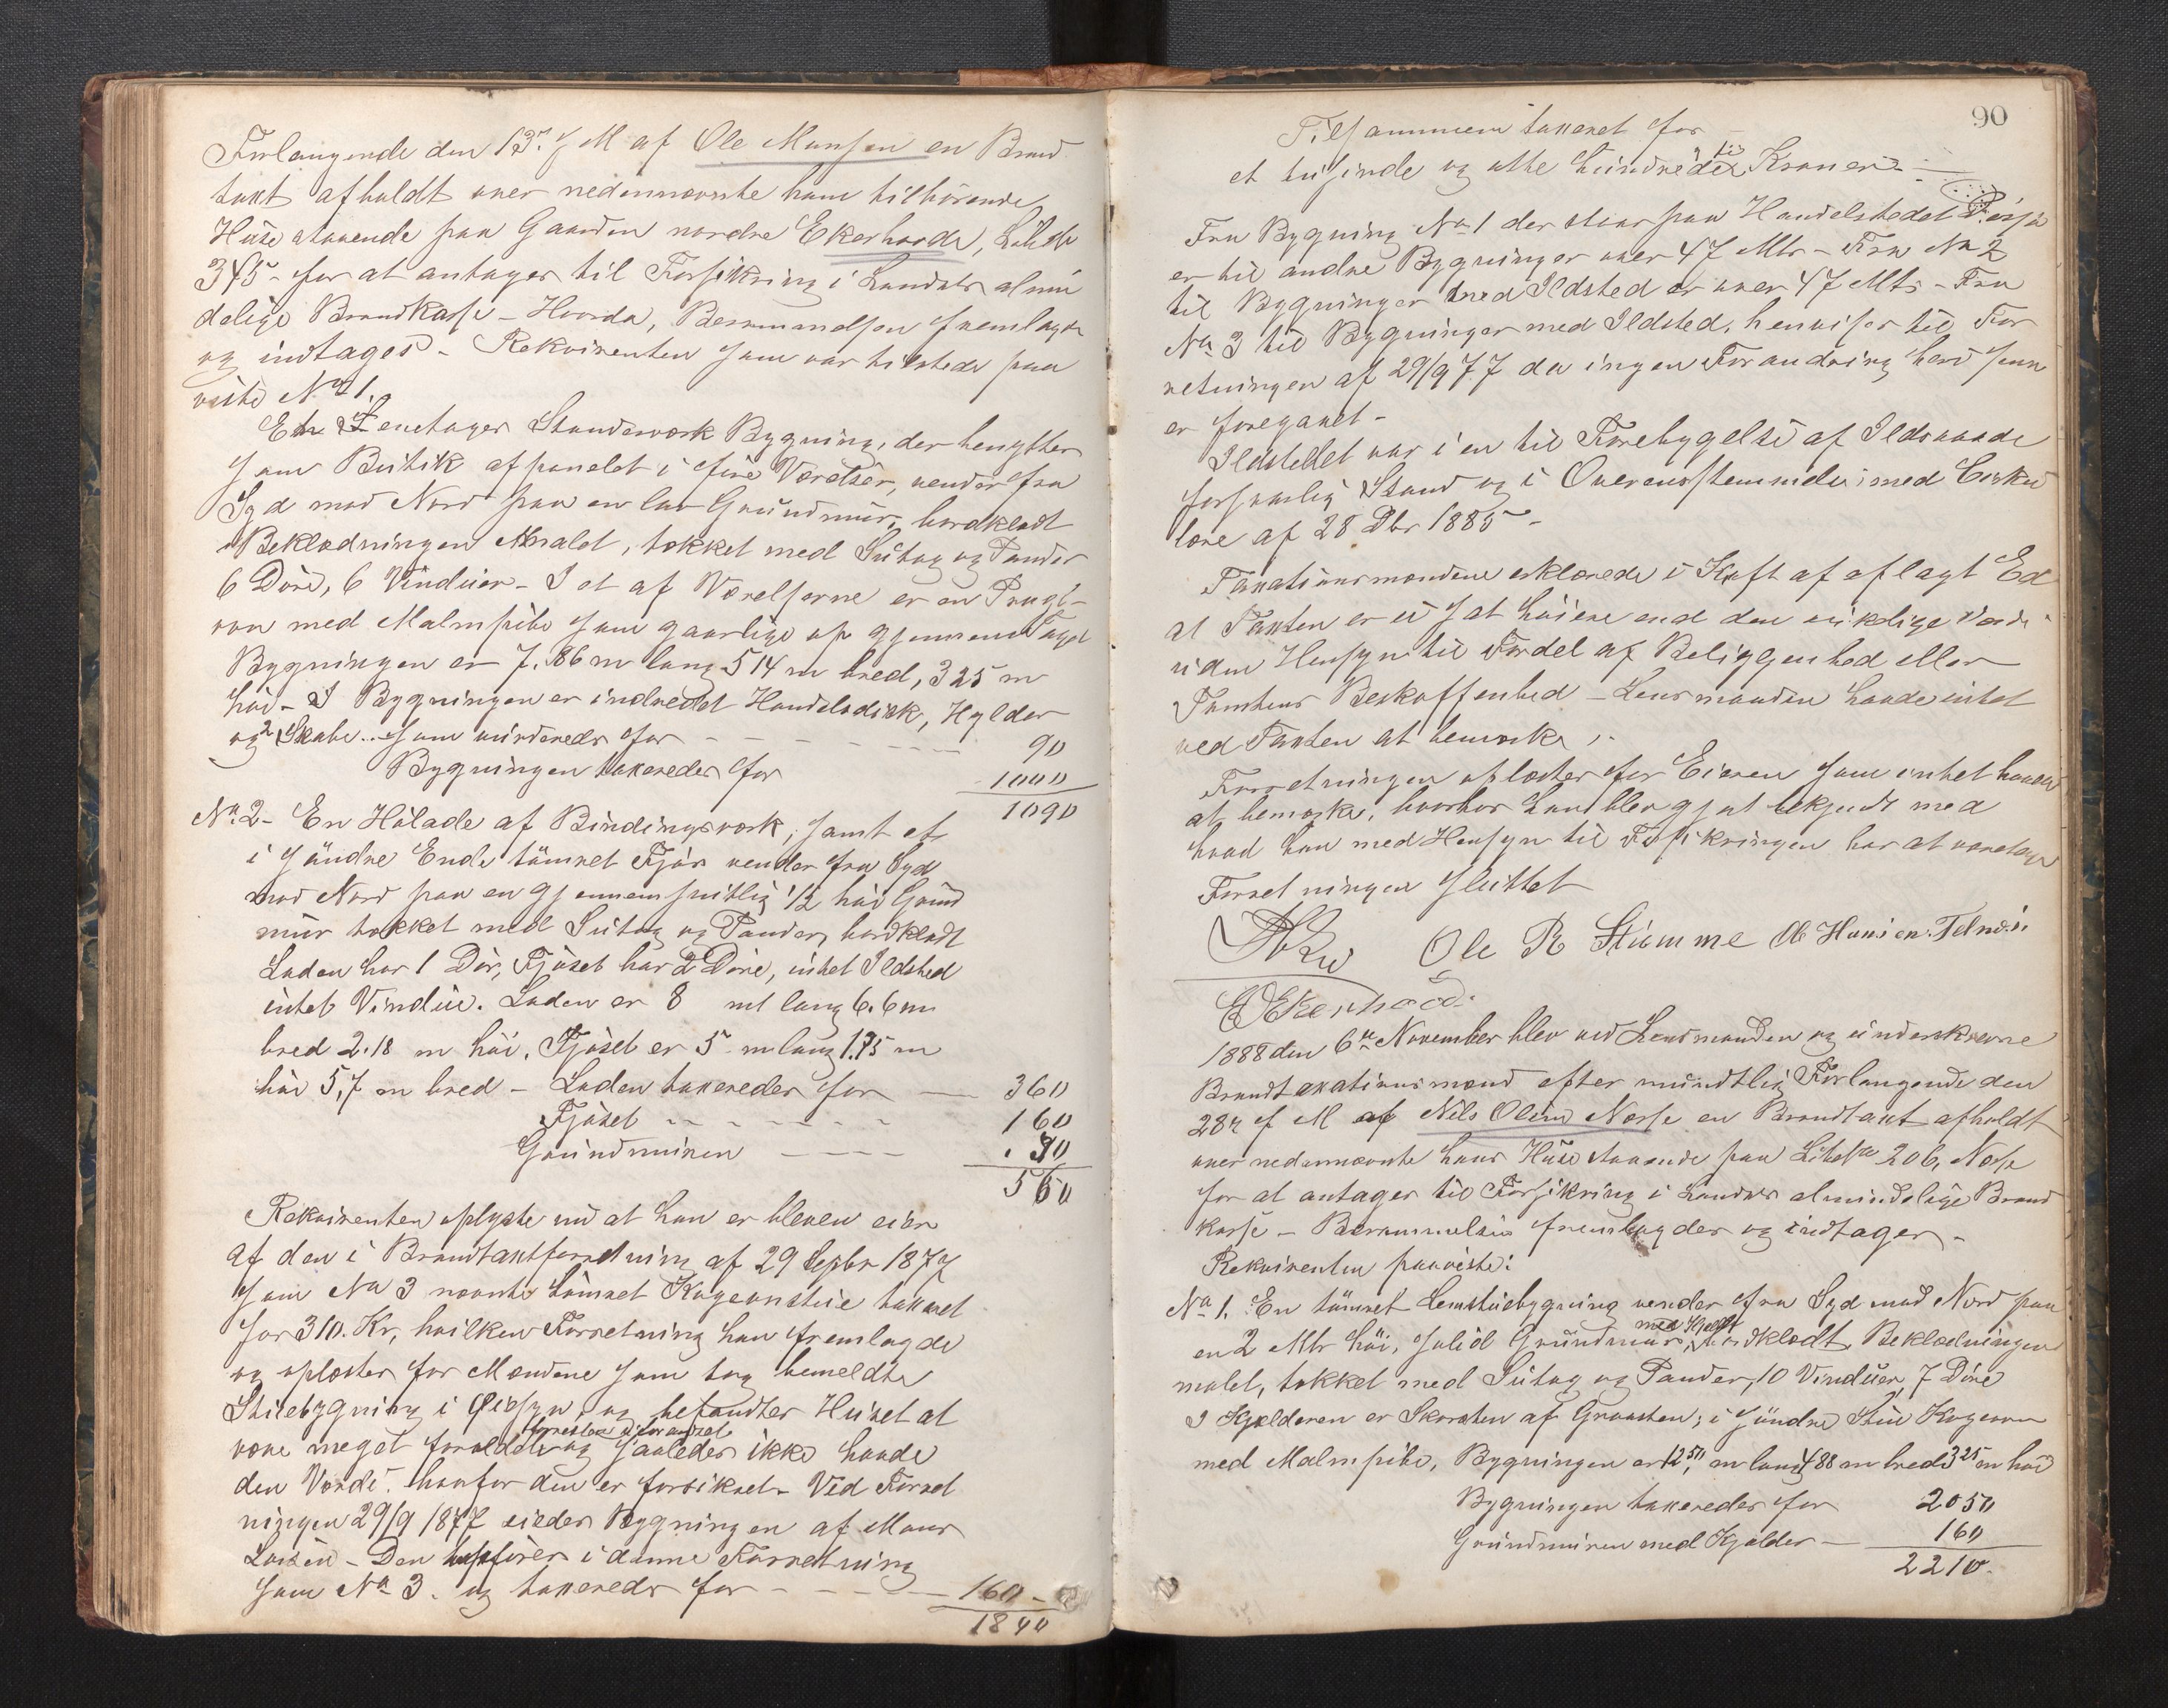 Forlangende den 13de f M af Ole Monsen en Brand
taxt afholdt over nedennævnte ham tilhørende
Huse staaende paa Gaarden nordre Ekerhovde, Løbde
345 - for at antages til Forsikring i Landets almin
delige Brandkasse - Hvorda, Berammelsen fremlagdes
og indtages. - Rekvirenten som var tilstede paa
viste No 1.
En Eenetages Standværk Bygning, der benyttes
som Butik afpanelet i fire Værelser, vender fra
Syd mod Nord paa en lav Grundmur, bordklædt
Beklædningen Malet, tækket med Sutag og Pander
6 Døre, 6 Vinduer - I et af Værelserne er en Prugt-
ovn med Malmpibe som gaar lige op gjennem Taget
Bygningen er 7.86 m lang 514 m bred, 325 m
høi - I Bygningen er indredet Handelsdisk, Hylder
og 2 Skabe... som vurderedes for - - - - - 90
Bygningen taxeredes for 1000
1090
No 2 - En Hølade af Bindingsværk, samt et
i søndre Ende tømret Fjøs vender fra Syd
mod Nord paa en gjennemsnitlig 1/2 høi Grund
mur tækket med Sutag og Pander, bordklædt
Laden har 1 Dør, Fjøset har 2 Døre, intet Ildsted
intet Vindue. Laden er 8 mt lang 6.6 m
bred 2.18 m høi. Fjøset er 5 m lang 1.75 m
høi 5,7 m bred - Laden taxeredes for — 360
Fjøset - - - - - - 160
Grundmuren - - - - 30
550
Rekvirenten oplyste nu at han er bleven eier
af den i Brandtaxtforretning af 29 Septbr 1877
som No 3 nævnte tømret Kogeovnstue taxeret
for 310. Kr, hvilken Forretning han fremlagde
og oplæstes for Mændene som tog bemeldte
Stuebygning i Øiesyn, og befandtes Huset at
forresten uforandret
være meget forældet og saaledes ikke havde
den Værdi hvorfor den er forsikret - Ved Forret
ningen 29/9 1877 eiedes Bygningen af Mons
Larsen - Den opføres i denne Forretning
som No 3. og taxeredes for - - - - 160 -
1800
90
Tilsammen taxeret for
et tusinde og otte hundrede Kroner -
Fra Bygning No 1 der staar paa Handelstedet
er til andre Bygninger over 47 Mtr - Fra No 2
til Bygninger med Ildsted er over 47 Mtr - Fra
No 3 til Bygninger med Ildsted, henvises til For
retningen af 29/9 77 da ingen Forandring heri siden
er foregaaet -
Ildstedet var i en til Forebyggelse af Ildsvaade
forsvarlig Stand og i Overensstemmelse med Cirku
lære af 28 Dbr 1885 -
Taxationsmændene erklærede i Kraft af aflagt Ed
at Taxten er ei sat høiere end den virkelige Værdi
uden Hensyn til Fordel af Beliggenhed eller
Tomtens Beskaffenhed - Lensmanden havde intet
ved Taxten at bemærke,
Forretningen oplæstes for Eieren som intet havde
at bemærke, hvorhos han blev gjort bekjendt med
hvad han med Hensyn til Forsikringen har at varetage
Forretningen sluttet
Ole R Stumme
Ekerhovd.
1888 den 6te November blev ved Lensmanden og underskrevne
Brandtaxationsmænd efter mundtlig Forlangende den
28de f M af Nils Olsen Nesse en Brandtaxt afholdt
over nedennævnte hans Huse staaende paa Løb No 206, Nesse
for at antages til Forsikring i Landets almindelige Brand
kasse - Berammelsen fremlagdes og indtages. -
Rekvirenten paaviste:
No 1. En tømret Lemstuebygning vender fra Syd mod Nord paa
med Kjelder
en 2 Mtr høi, solid Grundmur, bordklædt, Beklædningen
malet, tækket med Sutag og Pander, 10 Vinduer, 7 Døre
I Kjælderen er Skorsten af Graasten; i søndre Stue Kogeovn
med Malmpibe, Bygningen er 12 50 m lang 488 m bred 3 25 m høi
Bygningen taxeredes for 2050
Grundmuren med Kjelder — 160
2210.